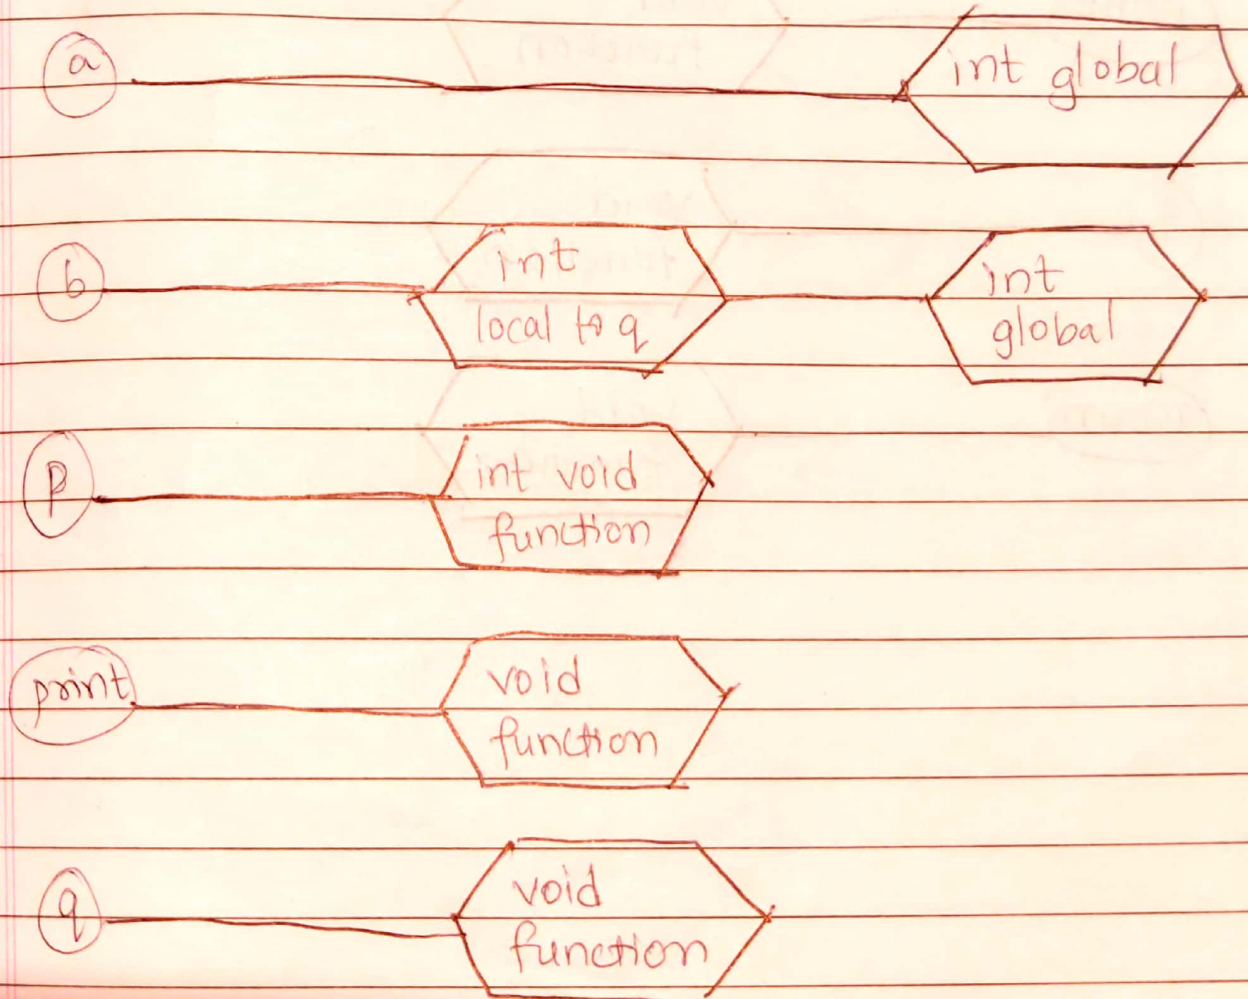 a
int global
b
int
local to q
int
global
p
int void
function
print
void
function
q
void
function